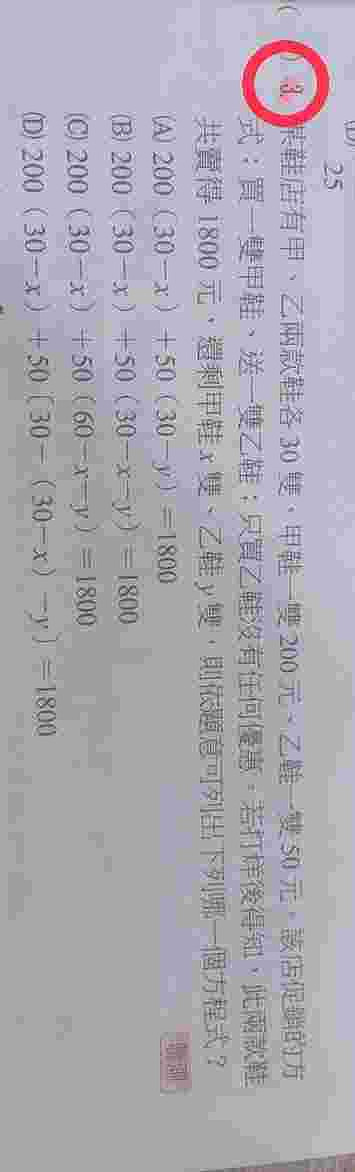 25
( ) 3. 某鞋店有甲、乙兩款鞋各 30 雙,甲鞋一雙 200 元,乙鞋一雙 50 元。該店促銷的方
式:買一雙甲鞋,送一雙乙鞋;只買乙鞋沒有任何優惠。若打烊後得知,此兩款鞋
共賣得 1800 元,還剩甲鞋 x 雙、乙鞋 y 雙,則依題意可列出下列哪一個方程式?
(A) 200(30-x)+50(30-y)=1800
(B) 200(30-x)+50(30-x-y)=1800
(C) 200(30-x)+50(60-x-y)=1800
(D) 200(30-x)+50〔30-(30-x)-y〕=1800